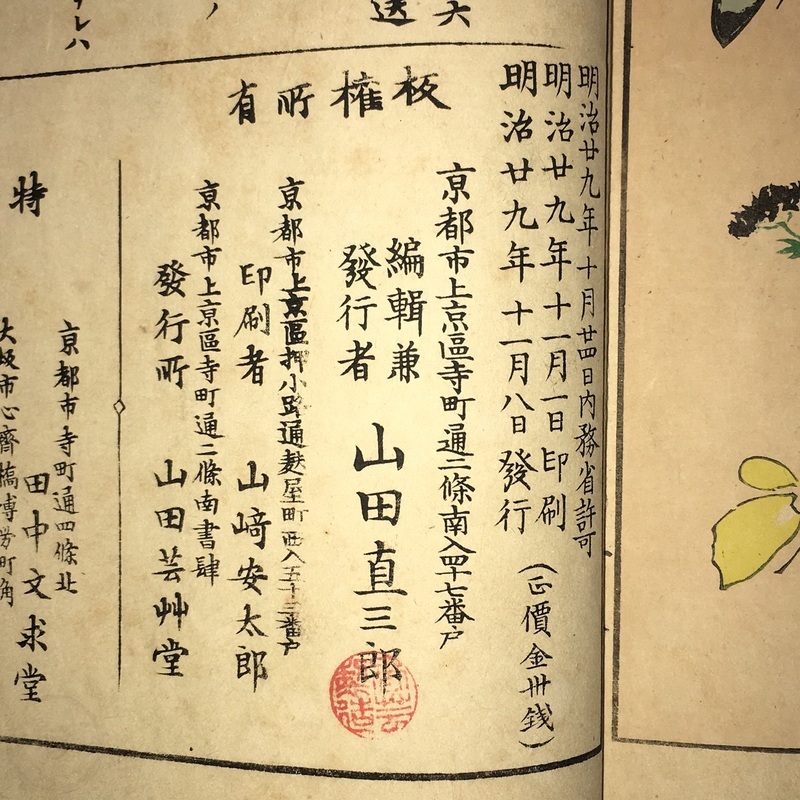 明治廿九年十月廿四日内務省許可
明治廿九年十一月一日印刷
明治廿九年十一月八日發行
(正價金卅錢)
板權所有
京都市上京區寺町通二條南入四十七番戸
編輯兼
發行者
山田直三郎
京都市上京區押小路通麩屋町西入五十三番戸
印刷者
山﨑安太郎
京都市上京區寺町通二條南書肆
發行所
山田芸艸堂
特
京都市寺町通四條北
田中文求堂
大坂市心齋橋博勞町角